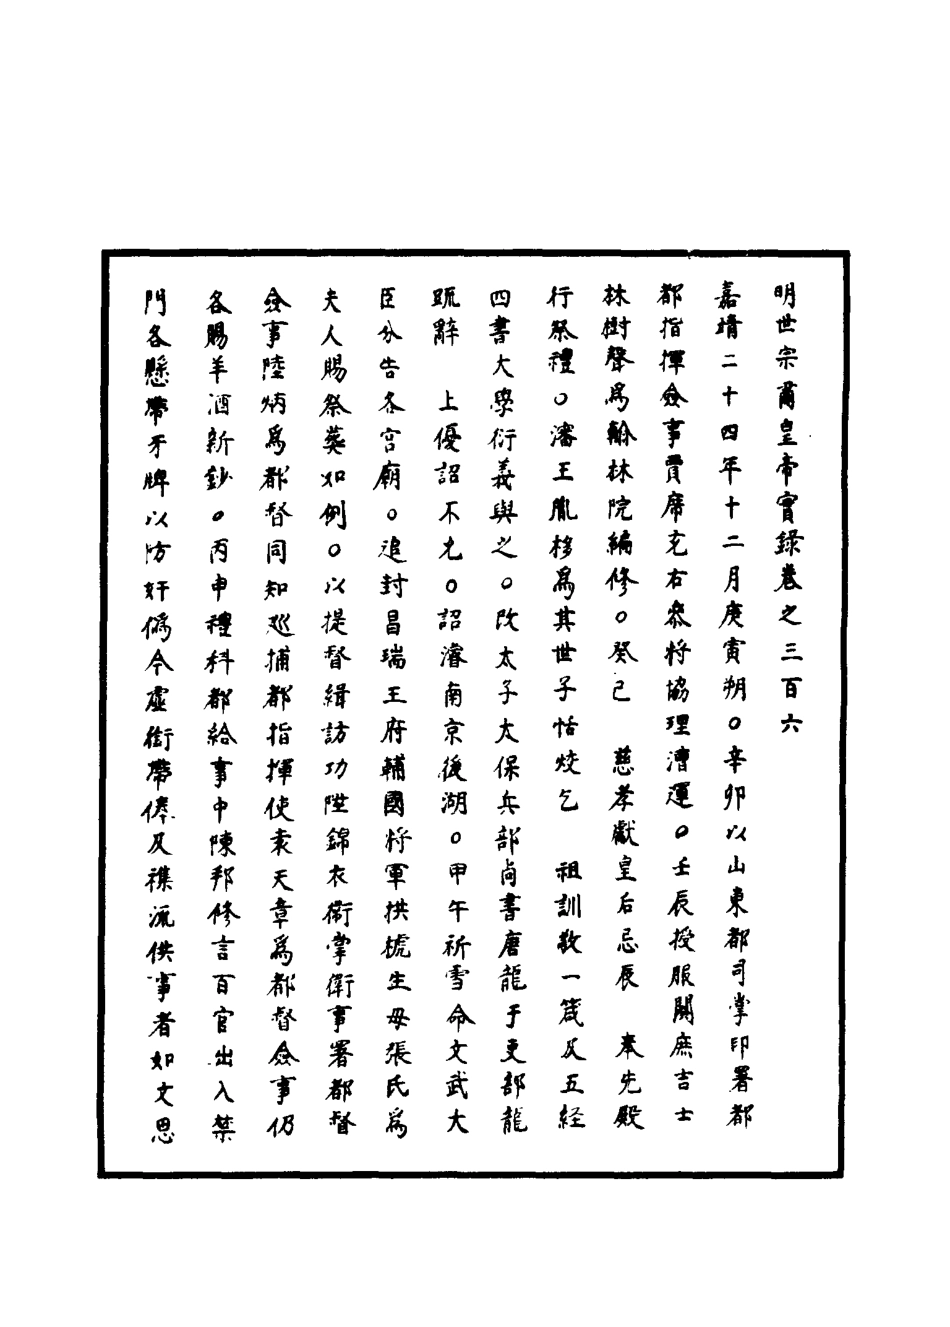 明世宗肅皇帝實錄卷之三百六
嘉靖二十四年十二月庚寅朔○辛卯以山東都司掌印署都
都指揮僉事賈席充右叅將協理漕運○壬辰授服闋庶吉士
林樹聲爲翰林院編修○癸巳 慈孝獻皇后忌辰 奉先殿
行祭禮○瀋王胤栘爲其世子恬烄乞 祖訓敬一箴及五経
四書大學衍義與之○改太子太保兵部尚書唐龍于吏部龍
䟽辭 上優詔不允○詔濬南京後湖○甲午祈雪命文武大
臣分告各宮廟○追封昌瑞王府輔國將軍拱樋生母張氏爲
夫人賜祭葬如例○以提督緝訪功陞錦衣衛掌衛事署都督
僉事陸炳爲都督同知巡捕都指揮使袁天章爲都督僉事仍
各賜羊酒新鈔○丙申禮科都給事中陳邦修言百官出入禁
門各懸帶牙牌以防奸僞今虛銜帶俸及襍流供事者如文思